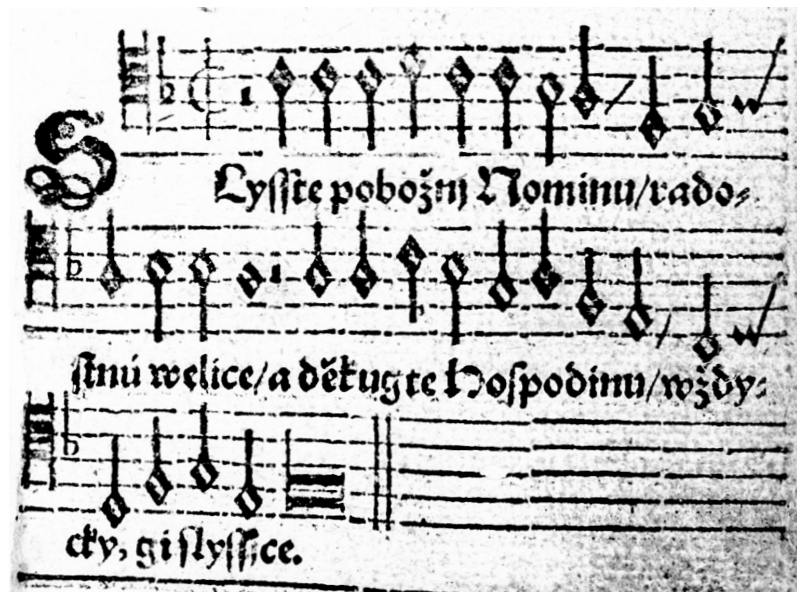 SLyſſte pobožnj Nominu/rado⸗
ſtnú welice/a děkugte Hoſpodinu/wždy⸗
cky, gi ſlyſſice.